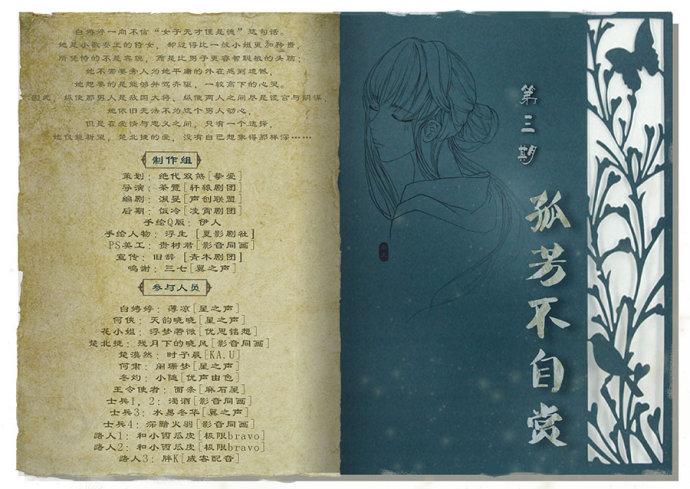 白娉婷一向不信“女子无才便是德”这句话。
她是小敬安王的侍女，却过得比一般小姐更加矜贵，
所凭恃的不是容貌，而是比男子更睿智聪敏的头脑；
她不需要旁人为她平庸的外在感到遗憾，
她想要的是能够并驾齐驱、一较高下的心灵。
因此，纵使那男人是敌国大将、纵使两人之间尽是谎言与阴谋，
她依旧无法不为这个男人动心，
但是在爱情与忠义之间，只有一个选择，
她仅能祈望，楚北捷的爱，没有自己想象得那样深……
制作组
策划：绝代双煞［挚爱］
导演：茶覽［轩辕剧团］
编剧：淑曼［声创联盟］
后期：饭冷［凌霄剧团］
手绘Q版：伊人
手绘人物：浮生［夏影剧社］
PS美工：贵村君［影音同画］
宣传：旧辞［青木剧团］
鸣谢：三七［翼之声］
参与人员
白娉婷：薄凉［星之声］
何侠：天韵晓晓［星之声］
花小姐：浮梦若微［优思铭想］
楚北捷：残月下的晓风［影音同画］
楚漠然：时予晨［KA.U］
何肃：闲珊梦［星之声］
冬灼：小随［优声由色］
王令使者：面条［麻石屋］
士兵1，2：浅酒［影音同画］
士兵3：水易冬华［翼之声］
士兵4：深黯火羽［影音同画］
路人1：和小西瓜皮［极限bravo］
路人2：和小西瓜皮［极限bravo］
路人3：胖K［咸客配音］
第三期
孤芳不自赏